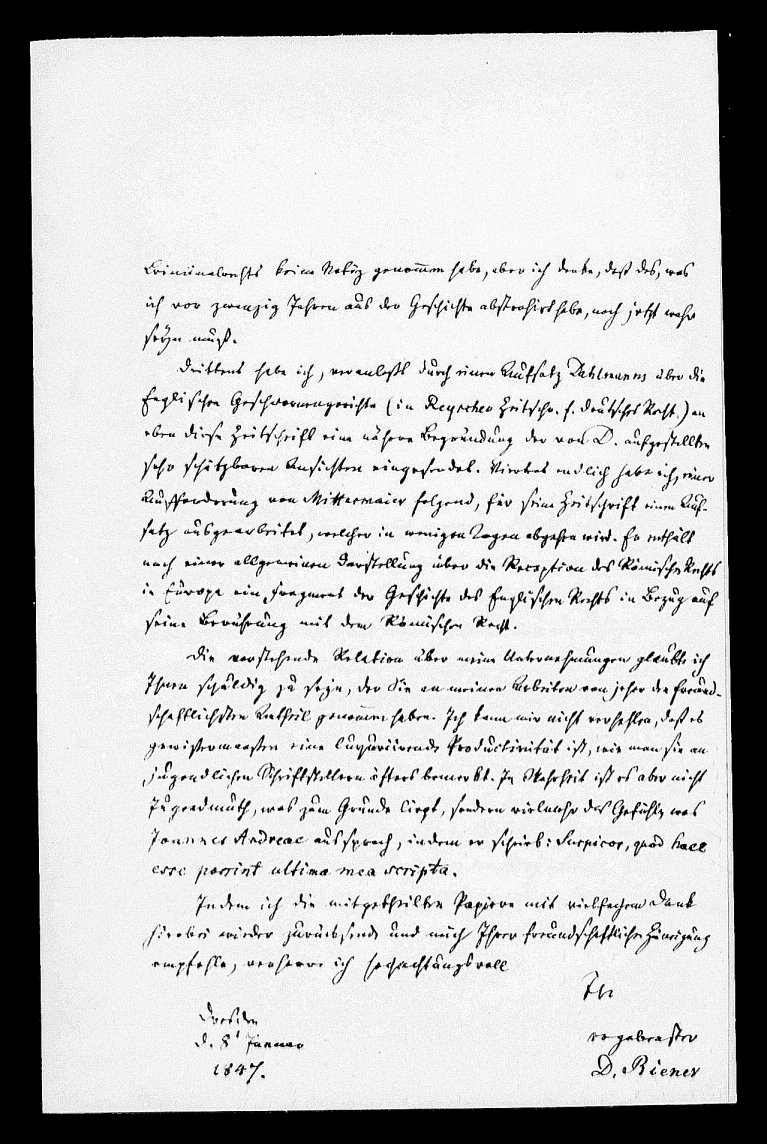 Criminalrechts keine Notiz genommen habe, aber ich denke, daß das, was
ich vor zwanzig Jahren aus der Geschichte abstrahirt habe, noch jetzt wahr
seyn muß.
Drittens habe ich, veranlaßt durch einen Aufsatz Dahlmanns über die
Englischen Geschwornengerichte (in Reyscher Zeitschr. f. deutsches Recht.) an
eben diese Zeitschrift eine nähere Begründung der von D. aufgestellten
sehr schätzbaren Ansichten eingesendet. Viertens endlich habe ich, einer
Aufforderung von Mittermaier folgend, für seine Zeitschrift einen Auf-
satz ausgearbeitet, welcher in wenigen Tagen abgehen wird. Er enthält
nach einer allgemeinen Darstellung über die Reception des Römischen Rechts
in Europa ein Fragment der Geschichte des Englischen Rechts in Bezug auf
seine Berührung mit dem Römischen Recht.
Die vorstehende Relation über meine Unternehmungen glaubte ich
Ihnen schuldig zu seyn, da Sie an meinen Arbeiten von jeher den freund-
schaftlichsten Antheil genommen haben. Ich kann mir nicht verhehlen, daß es
gewissermaaßen eine luxuriirende Productivität ist, wie man sie an
jugendlichen Schriftstellern öfters bemerkt. In Wahrheit ist es aber nicht
Jugendmuth, was zum Grunde liegt, sondern vielmehr das Gefühl, was
Joannes Andreae aussprach, indem er schrieb: Suspicor, quod haec
esse possint ultima mea scripta.
Indem ich die mitgetheilten Papiere mit vielfachem Dank
hierbei wieder zurücksende und mich Ihrer freundschaftlichen Zuneigung
empfehle, verharre ich hochachtungsvoll
Ihr
Dresden
d. 8 Januar
1847.
ergebenster
D. Biener